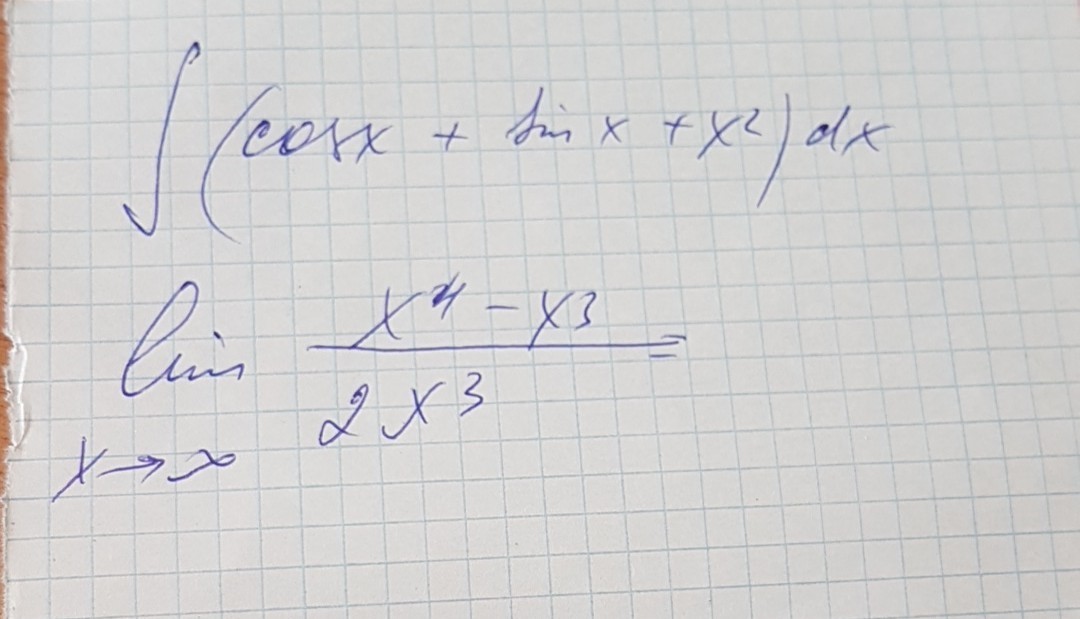 ∫(cosx + sin x + x²)dx
lim x→∞ (x⁴ - x³)/(2x³) =